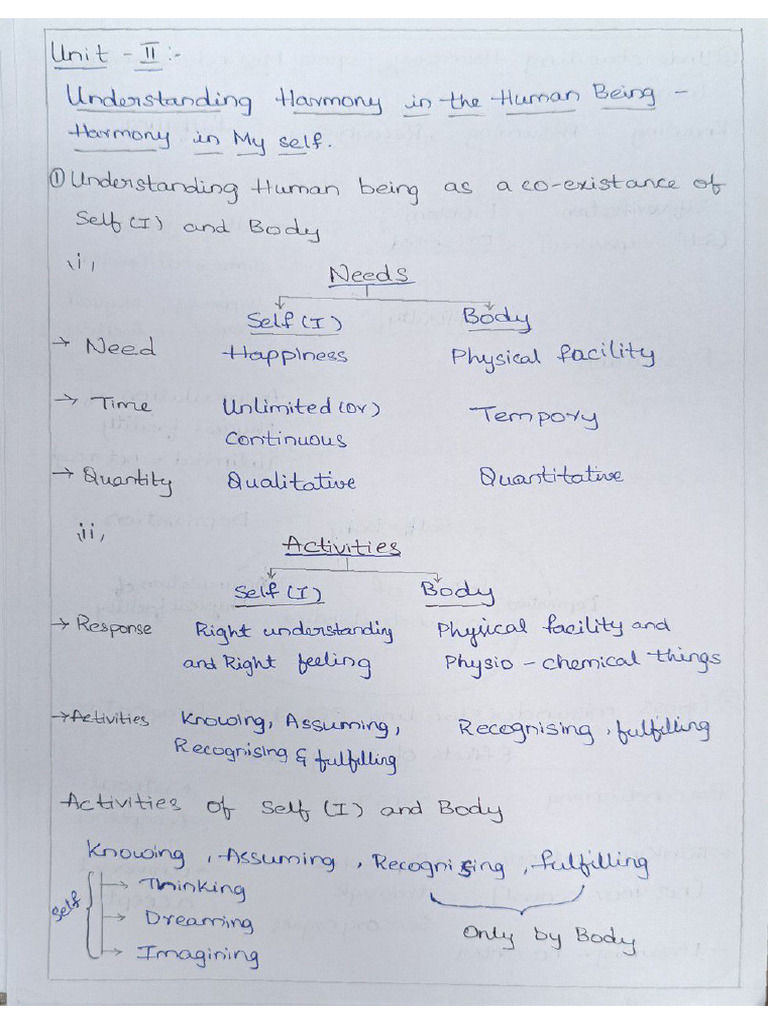 Unit - II :-
Understanding Harmony in the Human Being -
Harmony in My self.
① Understanding Human being as a co-existance of
Self(I) and Body
i,
Needs
Self(I) Body
→ Need Happiness Physical facility
→ Time Unlimited (or) Tempory
Continuous
→ Quantity Qualitative Quantitative
ii,
Activities
Self(I) Body
→ Response Right understanding Physical facility and
and Right feeling Physio - chemical things
→ Activities Knowing, Assuming, Recognising, fulfilling
Recognising & fulfilling
Activities of Self(I) and Body
Knowing, Assuming, Recognising, fulfilling
Self → Thinking
→ Dreaming Only by Body
→ Imagining